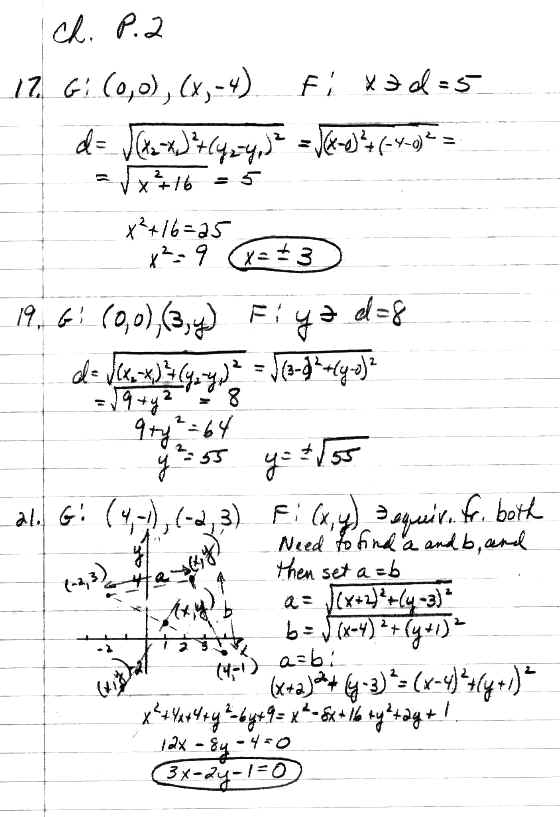 Ch. P.2
17. G: (0,0), (x,-4) F: x ∋ d=5
d = √(x₂-x₁)²+(y₂-y₁)² = √(x-0)²+(-4-0)² =
= √x²+16 = 5
x²+16=25
x²=9 x=±3
19. G: (0,0),(3,y) F: y ∋ d=8
d= √(x₂-x₁)²+(y₂-y₁)² = √(3-0)²+(y-0)²
= √9+y² = 8
9+y²=64
y²=55 y=±√55
21. G: (4,-1), (-2,3) F: (x,y) ∋ equiv. fr. both
Need to find a and b, and
then set a=b
a= √(x+2)²+(y-3)²
b= √(x-4)²+(y+1)²
a=b:
(x+2)²+(y-3)²=(x-4)²+(y+1)²
y
(-2,3) 4 a (x,y)
(x,y) b
-2 1 2 3 x
(x,y) -2 (4,-1)
x²+4x+4+y²-6y+9=x²-8x+16+y²+2y+1
12x-8y-4=0
3x-2y-1=0